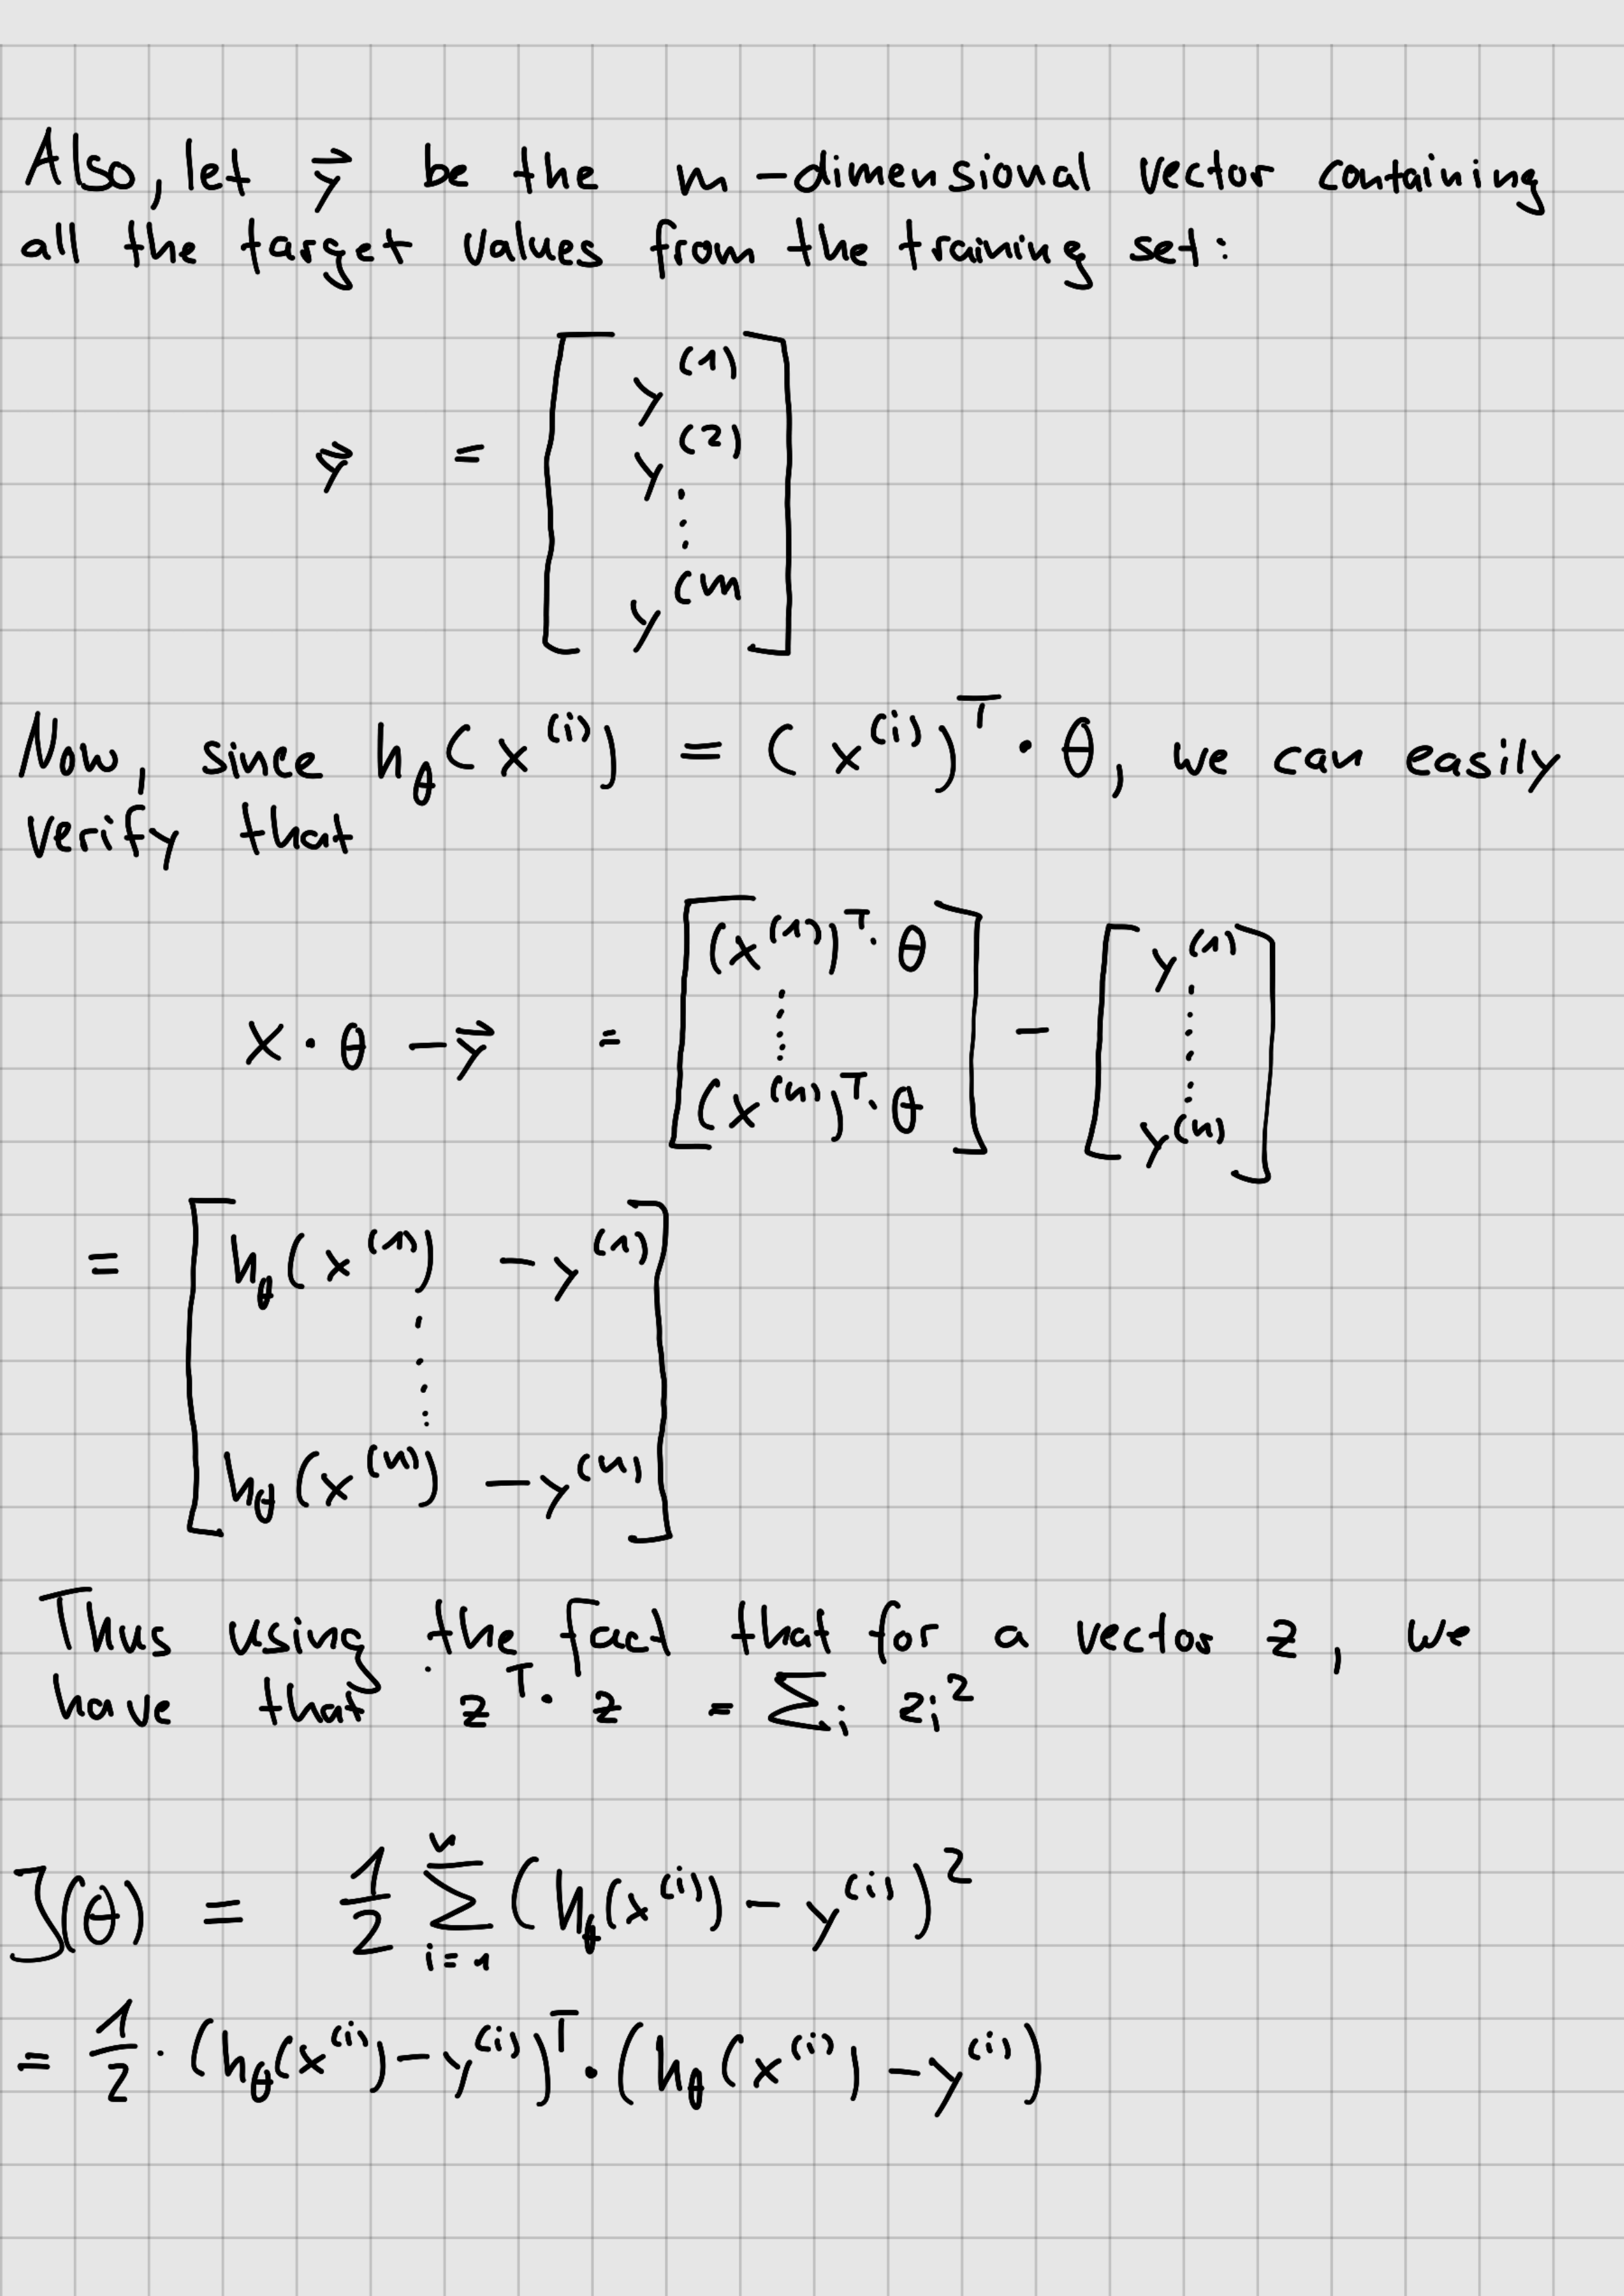 Also, let y⃗ be the m-dimensional vector containing
all the target values from the training set:
y⃗ = [ y^(1)
y^(2)
⋮
y^(m ]
Now, since h_θ(x^(i)) = (x^(i))^T · θ, we can easily
verify that
X · θ − y⃗ = [ (x^(1))^T · θ ⋮ (x^(n))^T · θ ] − [ y^(1) ⋮ y^(n) ]
= [ h_θ(x^(1)) − y^(1)
⋮
h_θ(x^(n)) − y^(n) ]
Thus using the fact that for a vector z, we
have that z^T · z = Σ_i z_i^2
J(θ) = 1/2 Σ_{i=1}^{n} (h_θ(x^(i)) − y^(i))^2
= 1/2 · (h_θ(x^(i)) − y^(i))^T · (h_θ(x^(i)) − y^(i))